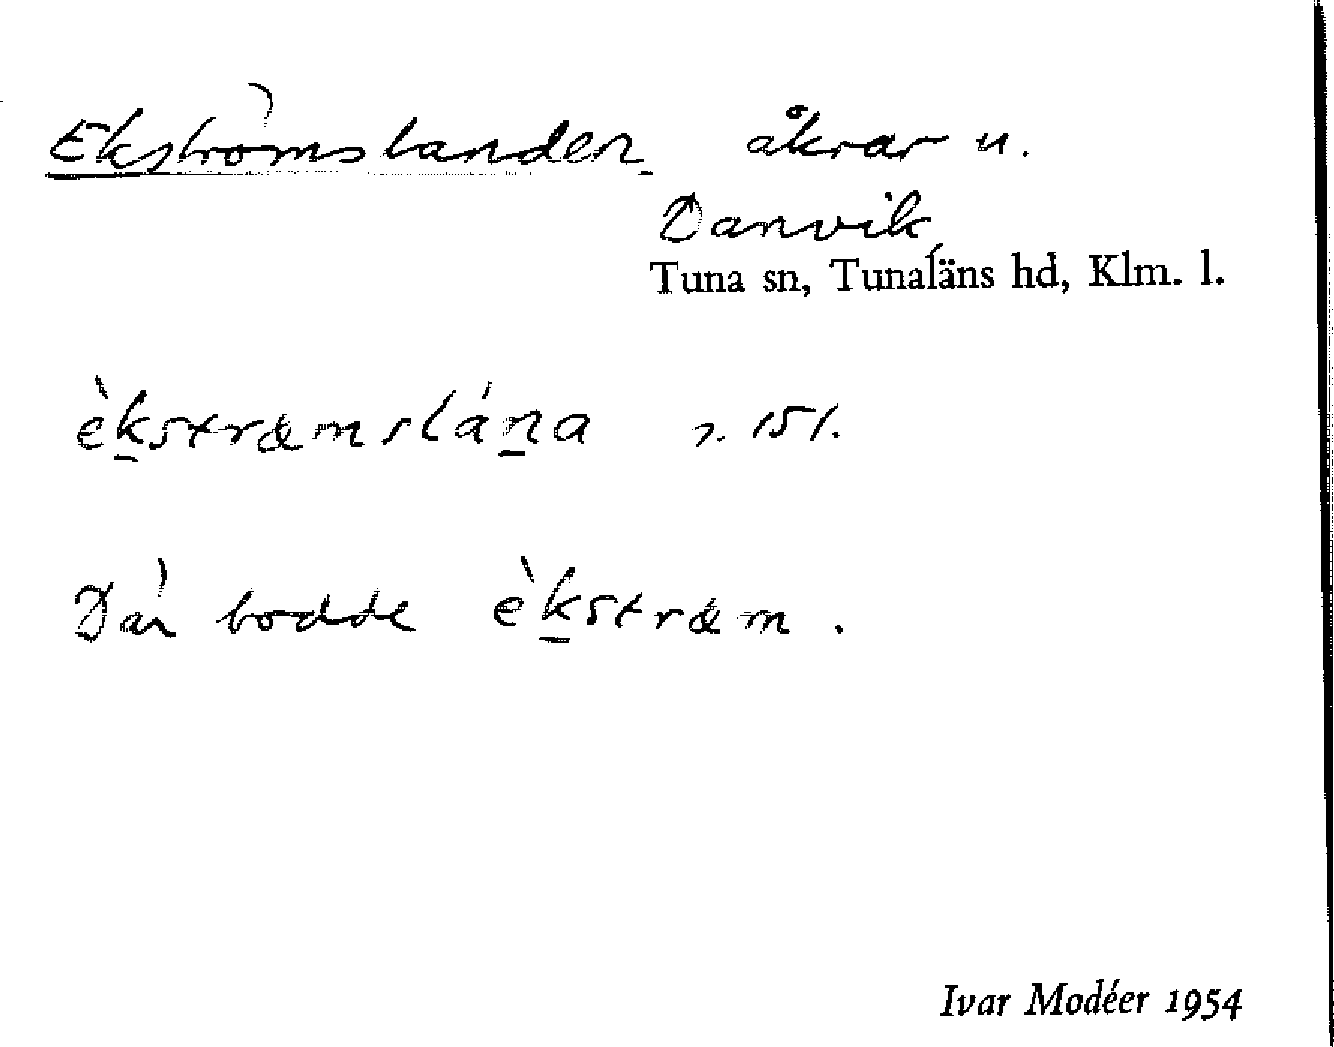 Ekströmslanden åkrar u.
Danvik
Tuna sn, Tunaläns hd, Klm. l.
èkstræmslána s. 151.
Där bodde èkstræm.
Ivar Modéer 1954